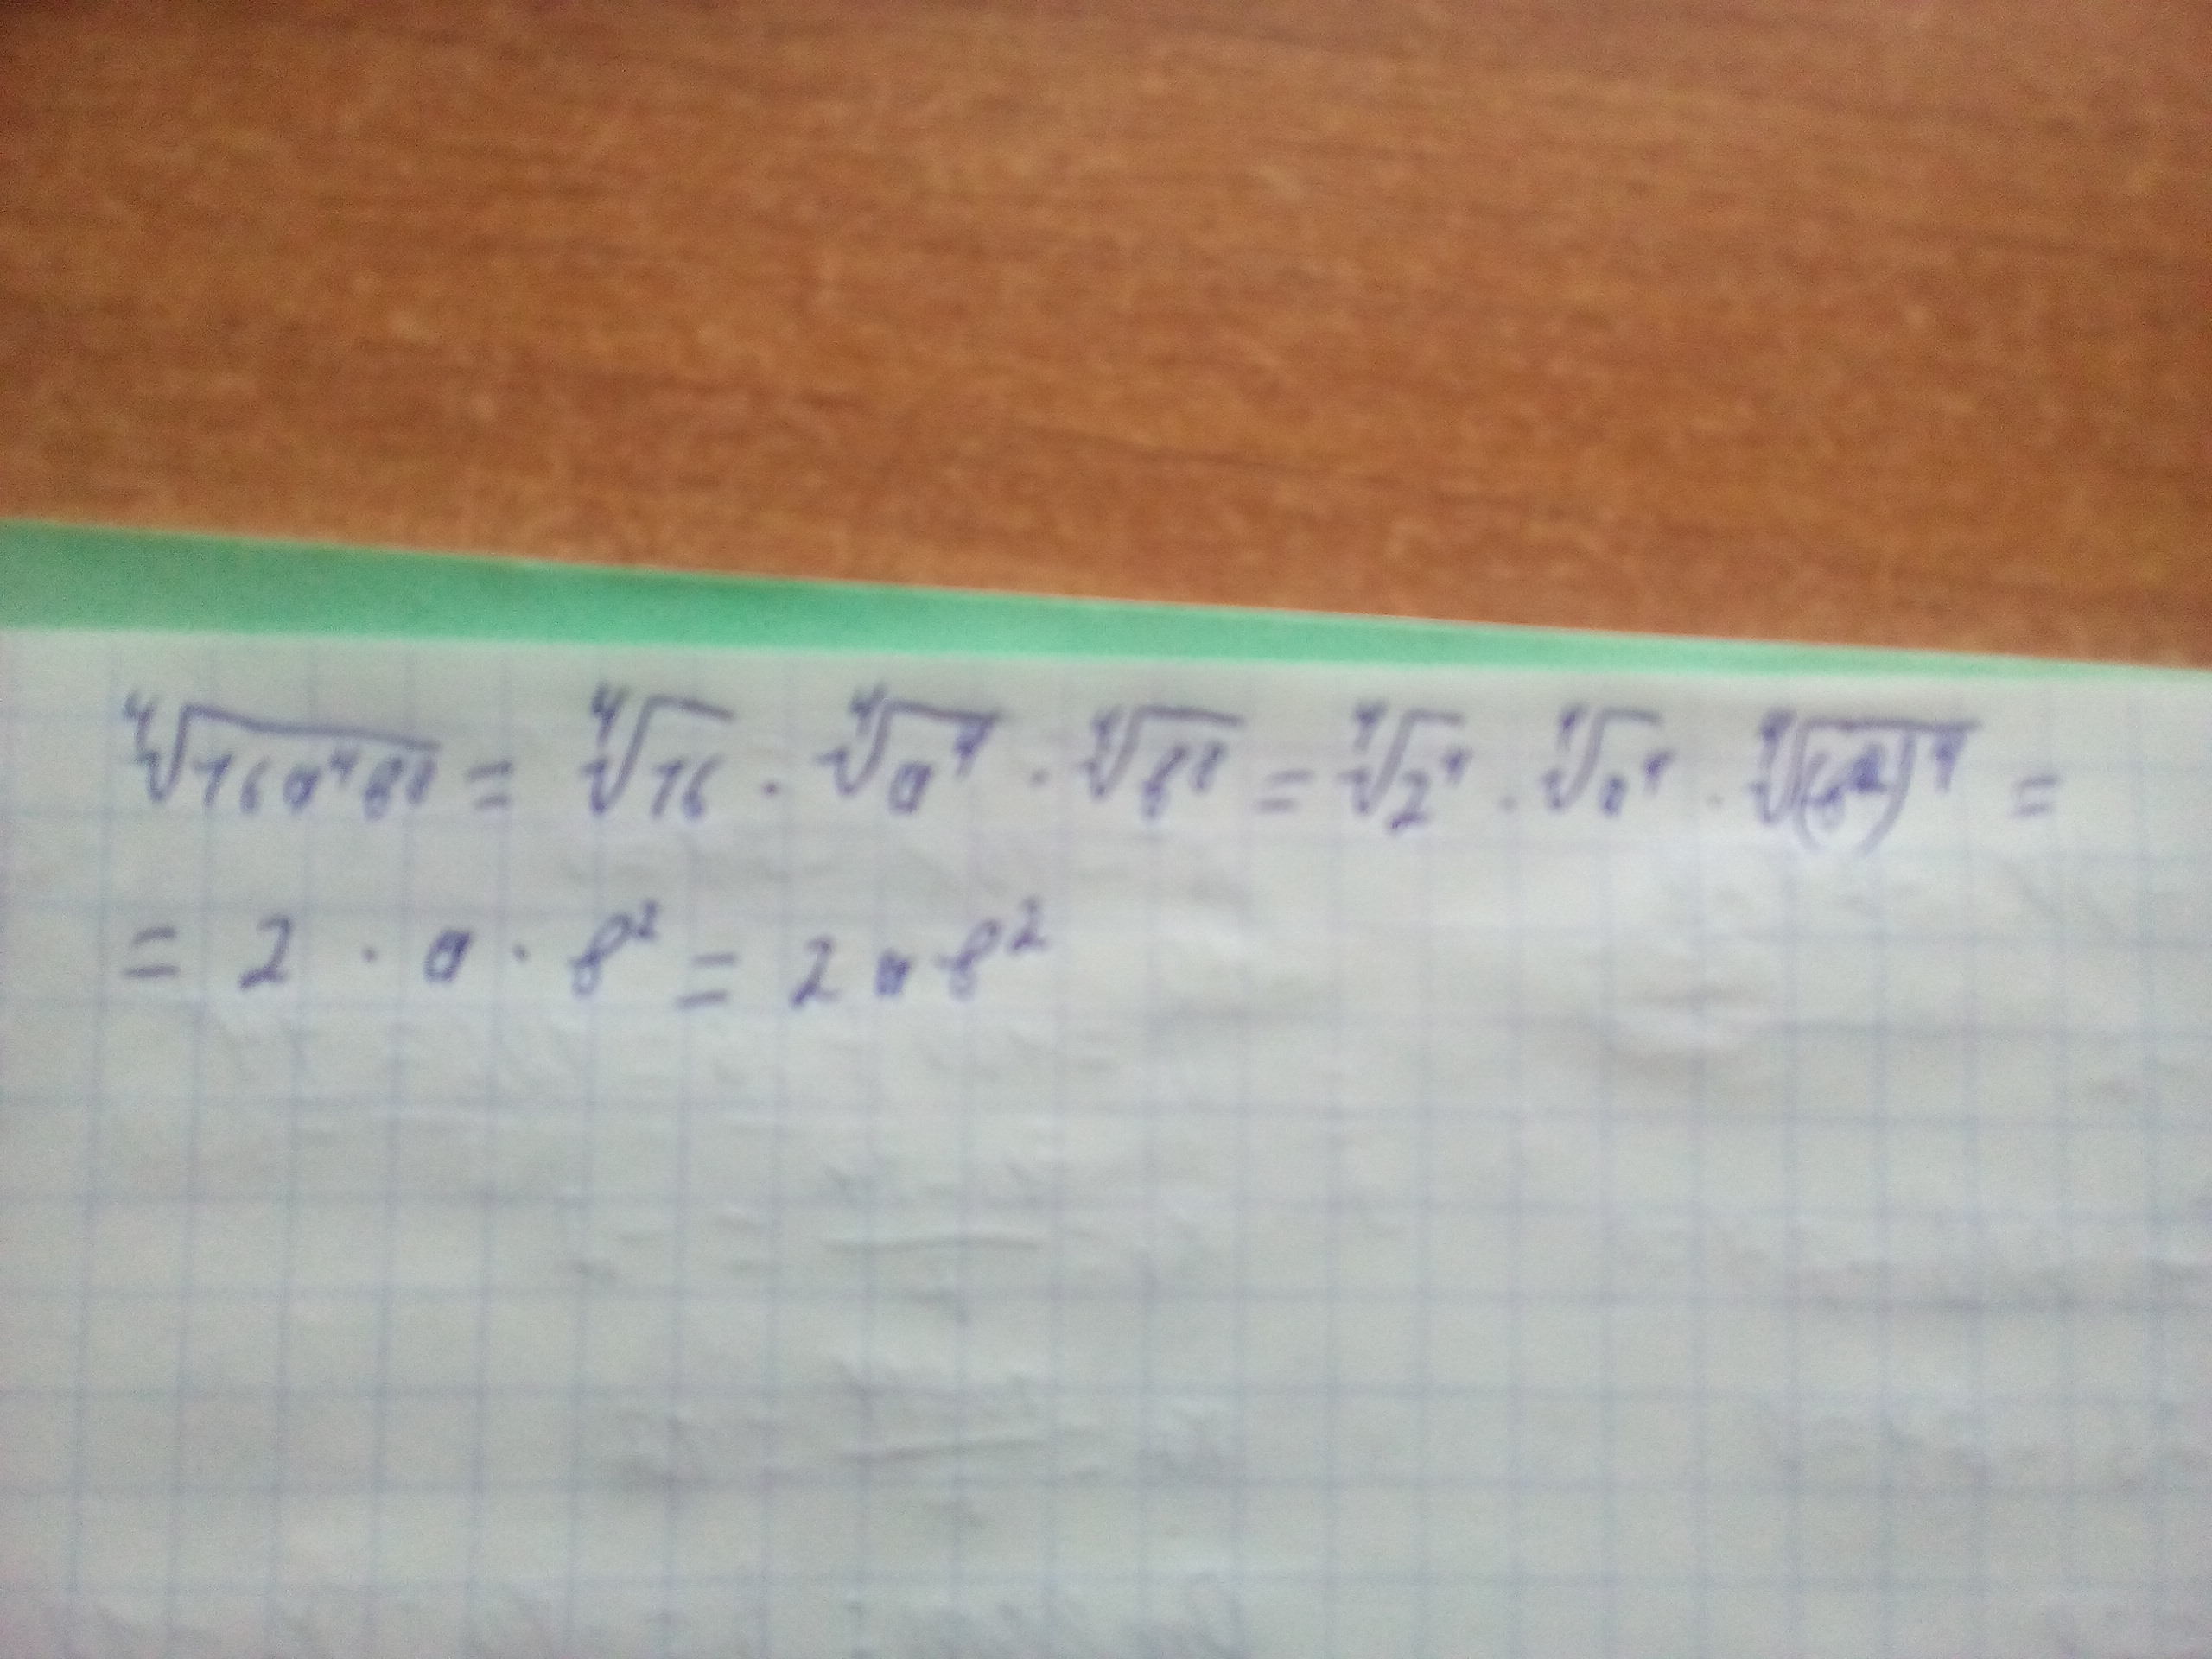 ⁴√(16a⁴b⁸) = ⁴√16 · ⁴√a⁴ · ⁴√b⁸ = ⁴√2⁴ · ⁴√a⁴ · ⁴√(b²)⁴ =
= 2 · a · b² = 2ab²